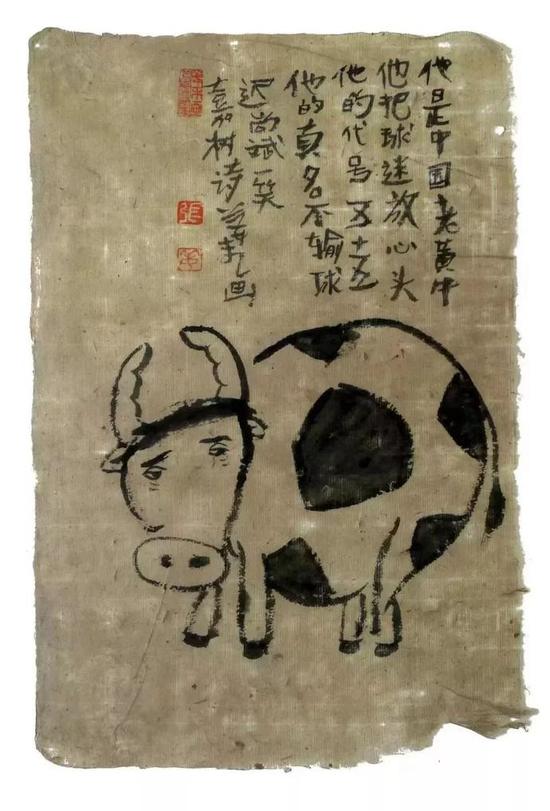 他是中国老黄牛
他把球迷放心头
他的代号五十五
他的真名不输球
迟尚斌一笑
嘉树诗 画
张